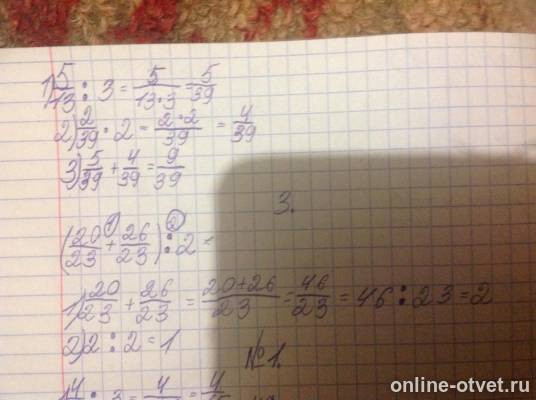 1) 5/13 : 3 = 5/13·3 = 5/39
2) 2/39 · 2 = 2·2/39 = 4/39
3) 5/39 + 4/39 = 9/39
3.
(20/23 +① 26/23) :② 2 =
1) 20/23 + 26/23 = 20+26/23 = 46/23 = 46 : 23 = 2
2) 2 : 2 = 1
№1.
online-otvet.ru